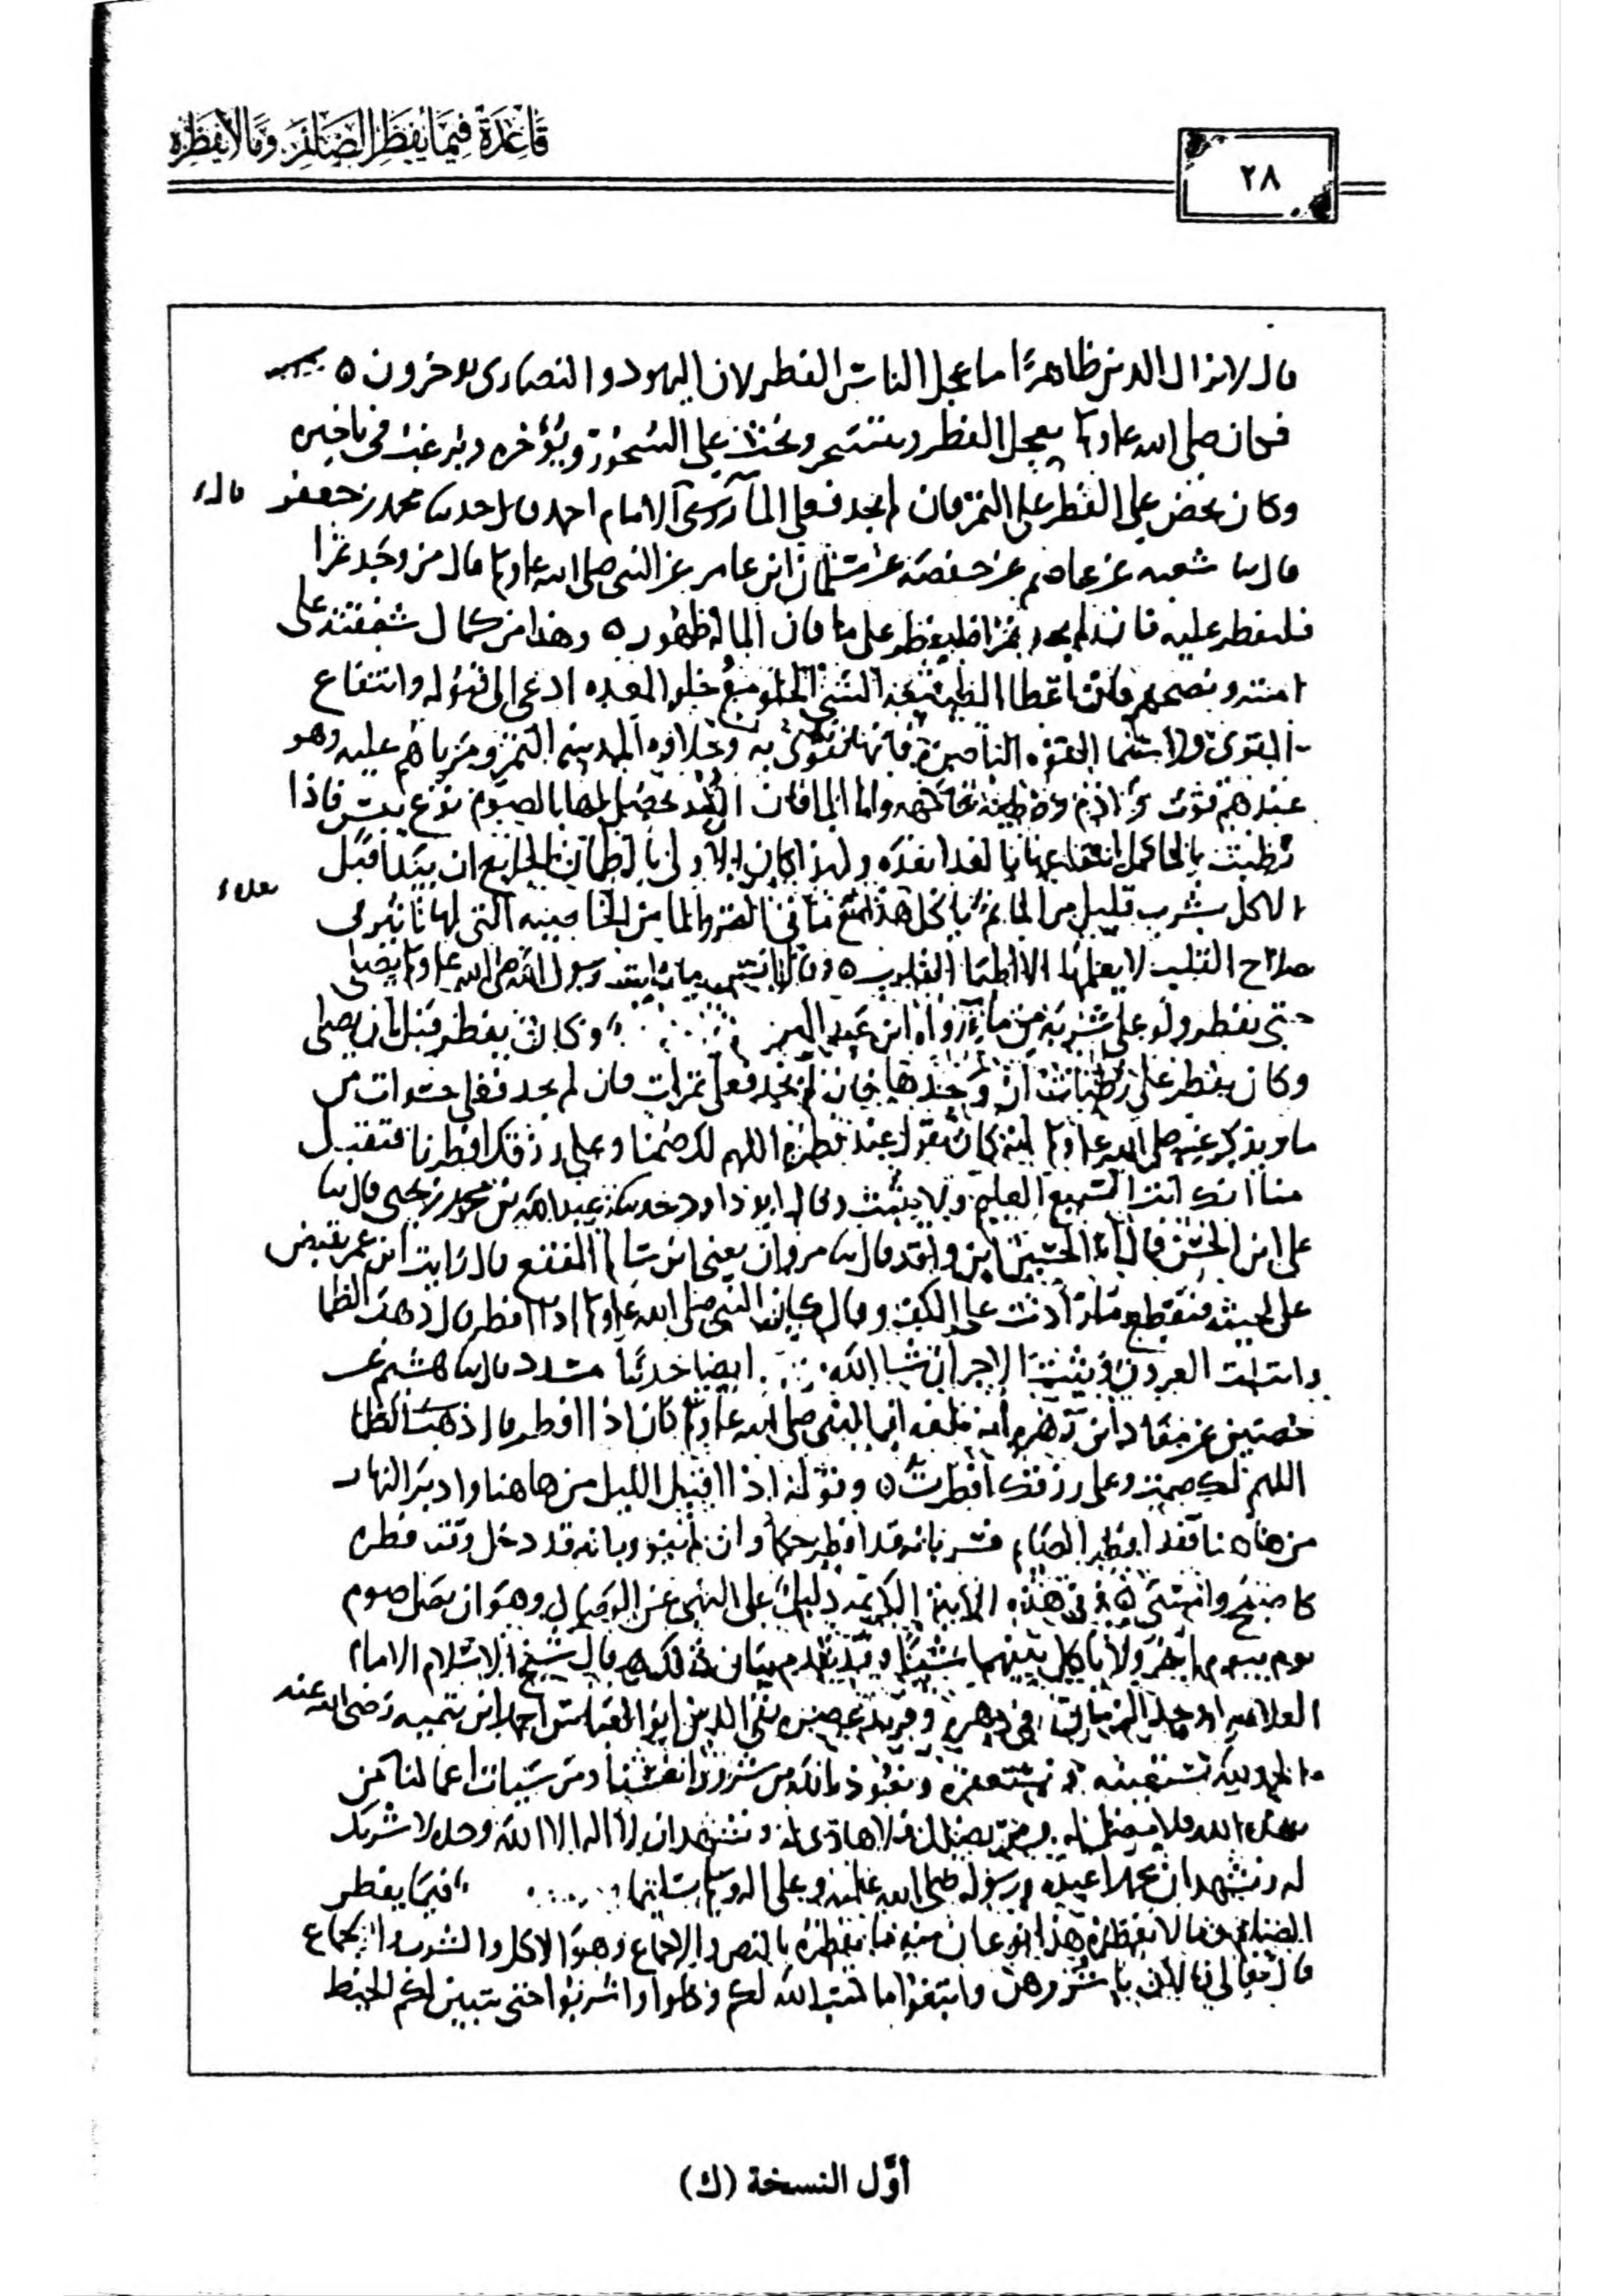 قاعدة فيما يفطر الصائم وما لا يفطره
٢٨
قال لا يزال الدين ظاهرا ما عجل الناس الفطر لان اليهود والنصارى يوخرون
فكان صلى الله عليه وسلم يعجل الفطر ويتسحر ويحث على السحور ويؤخره ويرغب في تاخيره
وكان يحض على الفطر على التمر فان لم يجد فعلى الما روى الامام احمد محمد بن جعفر قال
قال شعبه عن عاصم عن حفصه عن سلمان ابن عامر عن النبي صلى الله عليه وسلم قال من وجد تمرا
فليفطر عليه فان لم يجد تمرا فليفطر على ما فان الما له طهور وهذا من كمال شفقته على
امته ونصحهم فان اعطا الطبيعه الشي الحلو مع خلو المعده ادعى الى قبوله وانتفاع
القوى ولا سيما القوه الباصرة فانها تقوى به وحلاوه المدينه التمر ومرباهم عليه وهو
عندهم قوت وادم ورطبه فاكهه واما الما فان الكبد يحصل لها بالصوم نوع يبس فاذا
رطبت بالما كمل انتفاعها بالغدا بعده ولهذا كان الاولى بالظمان الجايع ان يبدا قبل
الاكل بشرب قليل من الما ثم ياكل هذا مع ما في التمر والما من الخاصيه التي لها تاثير في
صلاح القلب لا يعلمها الا اطبا القلوب رسول الله صلى الله عليه وسلم يصلي
حتى يفطر ولو على شربة من ما رواه ابن عبد البر وكان يفطر قبل ان يصلي
وكان يفطر على رطبات ان وجدها فان لم يجد فعلى تمرات فان لم يجد فعلى حسوات من
ما ويذكر عنه صلى الله عليه وسلم انه كان يقول عند فطره اللهم لك صمنا وعلى رزقك افطرنا فتقبل
منا انك انت السميع العليم ولا يثبت وقال ابو داود عبد الله بن محمد بن يحيى قال
على ابن الحسن قال الحسين ابن واقد قال مروان يعني ابن سالم المقفع قال رايت ابن عمر يقبض
على لحيته فيقطع ما زادت على الكف وقال كان النبي صلى الله عليه وسلم اذا افطر قال ذهب الظما
وابتلت العروق وثبت الاجر ان شا الله ايضا حدثنا مسدد قال هشيم عن
حصين عن معاذ ابن زهره انه بلغه ان النبي صلى الله عليه وسلم كان اذا افطر قال ذهب الظما
اللهم لك صمت وعلى رزقك افطرت وقوله اذا اقبل الليل من هاهنا وادبر النهار
من هاهنا فقد افطر الصايم فسر بانه قد افطر حكما وان لم ينوه وبانه قد دخل وقت فطره
كاصبح وامسى ففي هذه الاية الكريمه دليل على النهي عن الوصال وهو ان يصل صوم
يوم بيوم اخر ولا ياكل بينهما شيئا وقد تقدم بيان ذلك قال شيخ الاسلام الامام
العلامه اوحد الزمان في دهره وفريد عصره تقي الدين ابو العباس احمد ابن تيميه رضي الله عنه
الحمد لله نستعينه ونستغفره ونعوذ بالله من شرور انفسنا ومن سيات اعمالنا من
يهده الله فلا مضل له ومن يضلل فلا هادي له ونشهد ان لا اله الا الله وحده لا شريك
له ونشهد ان محمدا عبده ورسوله صلى الله عليه وعلى اله وسلم تسليما فيما يفطر
الصايم وما لا يفطره هذا نوعان منه ما يفطره بالنص والاجماع وهو الاكل والشرب والجماع
قال تعالى فالان باشروهن وابتغوا ما كتب الله لكم وكلوا واشربوا حتى يتبين لكم الخيط
أوَّل النسخة (ك)